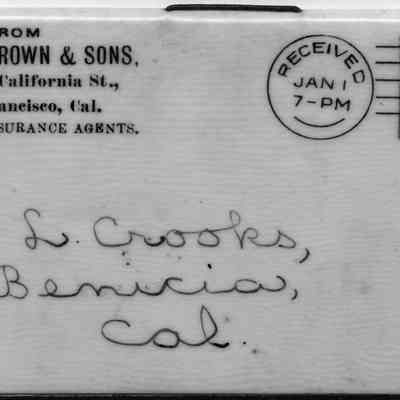 ROM
ROWN & SONS,
California St.,
ancisco, Cal.
SURANCE AGENTS.
RECEIVED
JAN 1
7-PM
L. Crooks,
Benicia,
Cal.